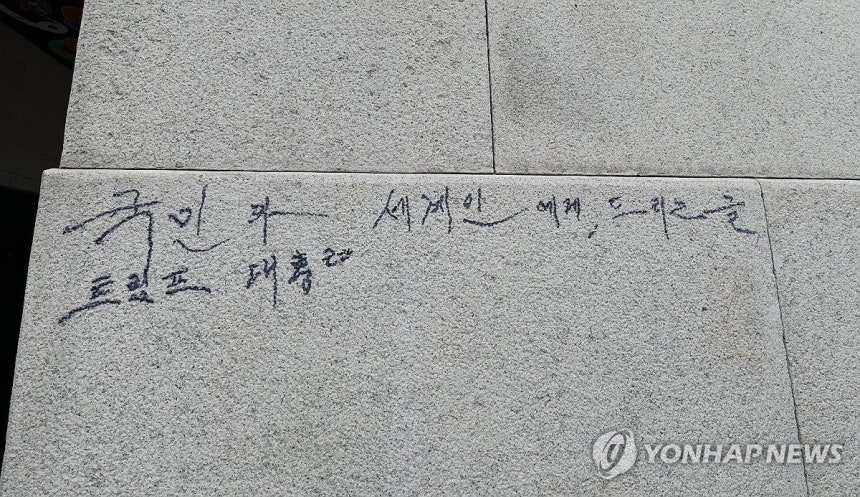 국민과 세계인에게, 드리는 글
트럼프 대통령
YONHAP NEWS